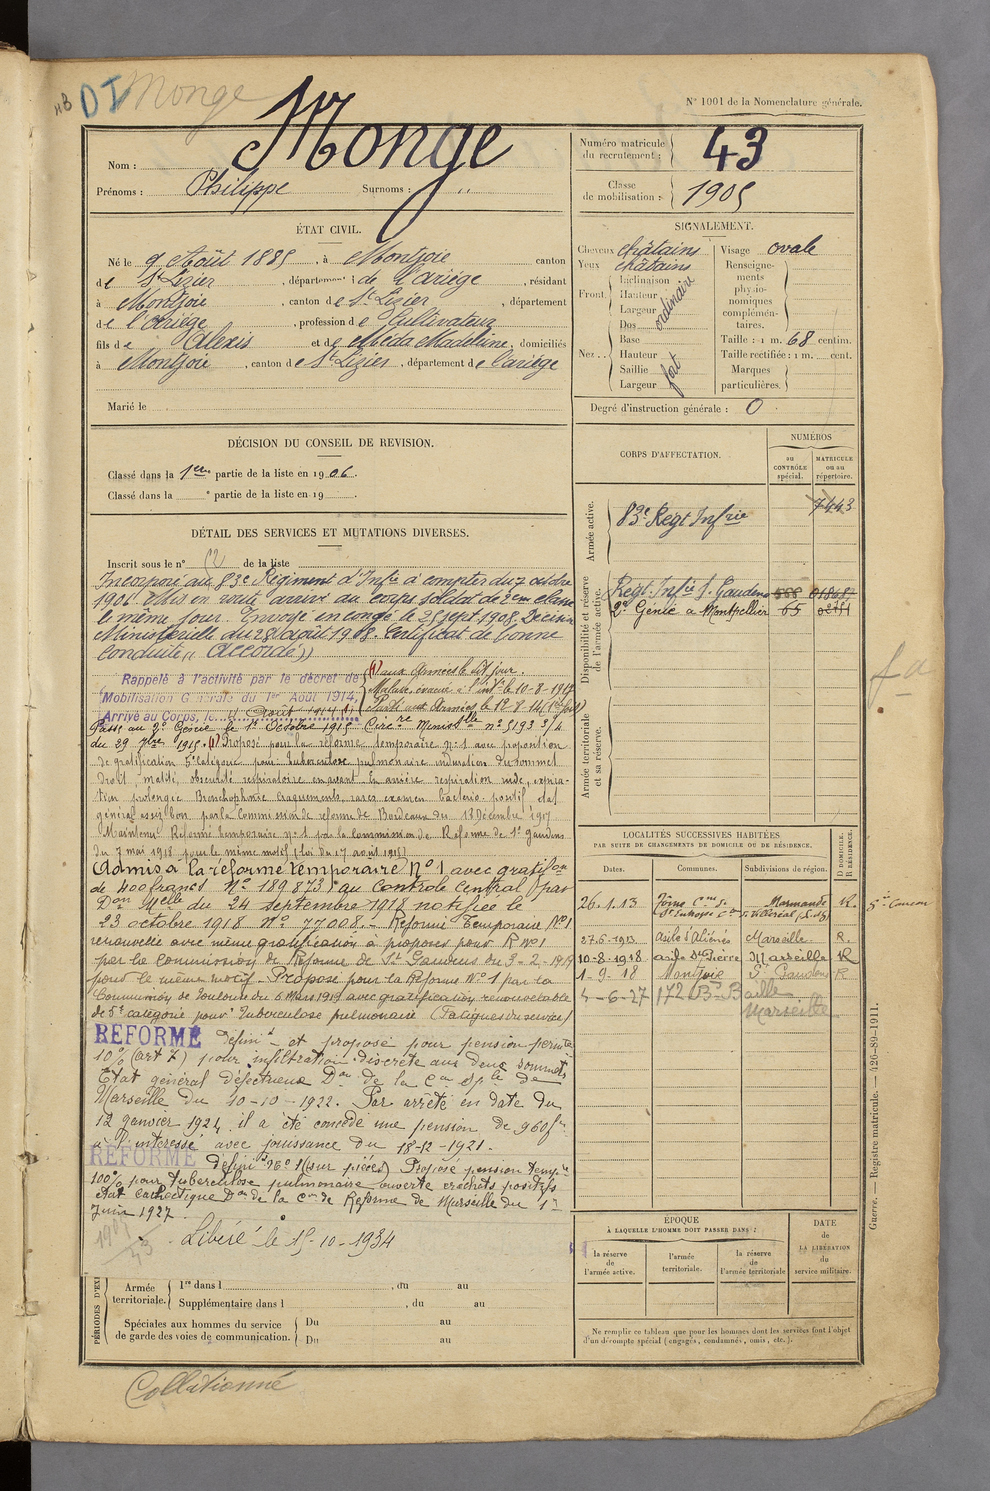 DI Monge
N° 1001 de la Nomenclature générale.
Nom : Monge
Prénoms : Philippe Surnoms : "
Numéro matricule du recrutement : 43
Classe de mobilisation : 1905
ÉTAT CIVIL.
Né le 9 Août 1885, à Montjoie canton
de St Lizier, département de l'ariège, résidant
à Montjoie, canton de St Lizier, département
de l'ariège, profession de Cultivateur
fils de Alexis et de Méda Madeleine, domiciliés
à Montjoie, canton de St Lizier, département de l'ariège
Marié le
SIGNALEMENT.
Cheveux châtains
Yeux châtains
Front. Inclinaison
Hauteur
Largeur
ordinaire
Nez. Dos
Base
Hauteur
Saillie
Largeur
fort
Visage ovale
Renseignements physionomiques complémentaires.
Taille : 1 m. 68 centim.
Taille rectifiée : 1 m. cent.
Marques particulières.
Degré d'instruction générale : 0
DÉCISION DU CONSEIL DE REVISION.
Classé dans la 1ère partie de la liste en 1906.
Classé dans la e partie de la liste en 19 .
CORPS D'AFFECTATION.
NUMÉROS
au CONTRÔLE spécial.
MATRICULE ou au répertoire.
Armée active.
83e Regt Infrie 7443
Disponibilité et réserve de l'armée active.
Regt Infie St Gaudens
2e Génie à Montpellier 65
Armée territoriale et sa réserve.
DÉTAIL DES SERVICES ET MUTATIONS DIVERSES.
Inscrit sous le n° 12 de la liste
Incorporé au 83e Régiment d'Infie à compter du 7 octobre
1906. Mis en route, arrivé au corps soldat de 2em classe
le même jour. Envoyé en congé le 25 sept 1908. Décision
Ministérielle du 28 août 1908. Certificat de bonne
Conduite "accordé"
Rappelé à l'activité par le décret de
Mobilisation Générale du 1er Août 1914,
Arrivé au Corps, le 11 Août 1914 (1)
(1) aux Armées le dit jour.
Malade, évacué le 10-8-1914
Parti aux Armées le
Passé au 2e Génie le 1er Octobre 1915 Circre Ministlle n° 5193 3/4
du 29 7bre 1915. (1) Proposé pour la réforme temporaire n° 1 avec proposition
de gratification 5e catégorie pour tuberculose pulmonaire induration du sommet
droit, matité, obscurité respiratoire en avant. En arrière respiration rude, expira-
tion prolongée Bronchophonie craquements rares examen bactério. positif état
général assez bon, par la Commission de réforme de Bordeaux du 18 Décembre 1917
Maintenu Réformé temporaire n° 1 par la commission de Réforme de St Gaudens
du 7 mai 1918 pour le même motif (Loi du 17 août 1915)
Admis à la réforme temporaire N° 1 avec gratifon
de 400 francs N° 189873 au Contrôle Central par
Don Melle du 24 Septembre 1918 notifiée le
23 octobre 1918 N° 77008. - Réformé Temporaire N° 1
renouvelée avec même gratification à proposer pour R N° 1
par la commission de Réforme de St Gaudens du 3-2-1919
pour le même motif - Proposé pour la Réforme N° 1 par la
Commission de Toulouse du 6 Mars 1919 avec gratification renouvelable
de 5e catégorie pour Tuberculose pulmonaire (Fatigues du service)
RÉFORMÉ définit et proposé pour pension permte
10% (art 7) pour infiltration discrète aux deux sommets
Etat général défectueux Don de la Con Sple de
Marseille du 10-10-1922. Par arrêté en date du
12 janvier 1924 il a été concédé une pension de 960 f
à l'intéressé avec jouissance du 18-12-1921.
RÉFORMÉ définit n° 1 (sur pièces) Proposé pension tempre
100% pour tuberculose pulmonaire ouverte crachats positifs
état cachectique Don de la Con de Réforme de Marseille du 1er
Juin 1927.
Libéré le 15-10-1934
1905
43
LOCALITÉS SUCCESSIVES HABITÉES
PAR SUITE DE CHANGEMENTS DE DOMICILE OU DE RÉSIDENCE.
Dates. Communes. Subdivisions de région. D DOMICILE. R RÉSIDENCE.
26.1.13 Marmande R.
27.5.1913 Asile d'Aliénés Marseille. R.
10-8-1918 asile St Pierre Marseille R
1-9-18 Montjoie St Gaudens R
4-6-27 172 Bd Baille Marseille
Guerre. — Registre matricule. — 426-89-1911.
ÉPOQUE
À LAQUELLE L'HOMME DOIT PASSER DANS :
la réserve de l'armée active.
l'armée territoriale.
la réserve de l'armée territoriale
DATE DE LA LIBÉRATION du service militaire.
Ne remplir ce tableau que pour les hommes dont les services font l'objet
d'un décompte spécial (engagés, condamnés, omis, etc.).
PÉRIODES D'EX
Armée territoriale. 1re dans l , du au
Supplémentaire dans l , du au
Spéciales aux hommes du service de garde des voies de communication. Du au
Du au
Collationné